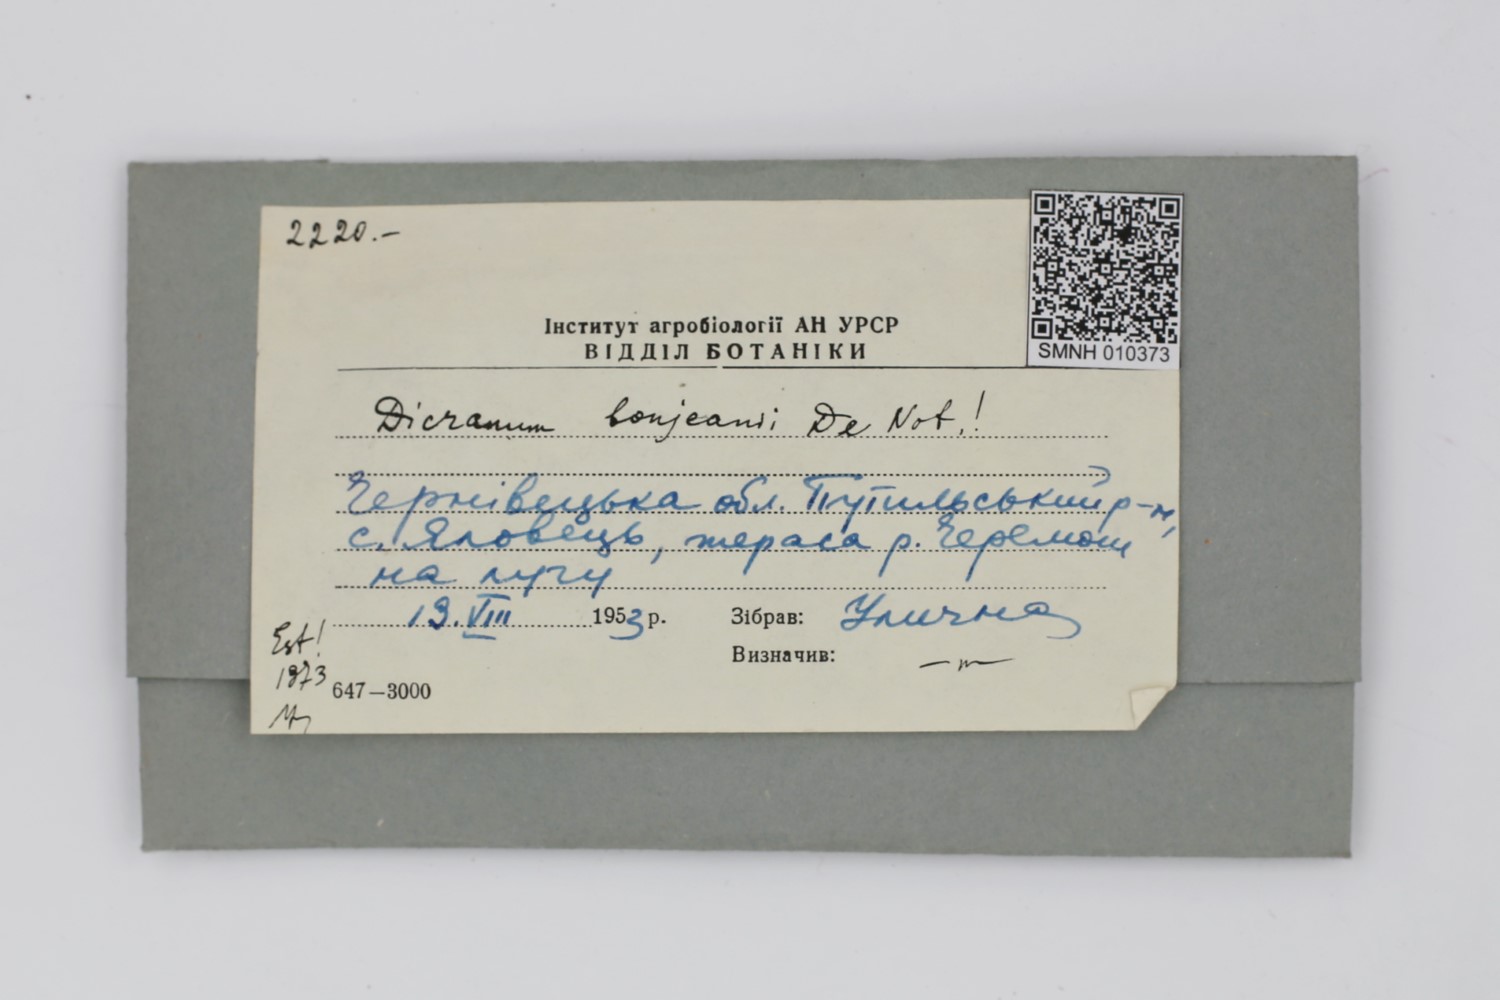 2220.—
SMNH 010373
Інститут агробіології АН УРСР
ВІДДІЛ БОТАНІКИ
Dicranum bonjeanii De Not.!
Чернівецька обл. Путильський р-н,
с. Яловець, тераса р. Черемош
на лугу
19.VIII 1953 р. Зібрав: Улична
Визначив: —„—
Est!
1973
647—3000